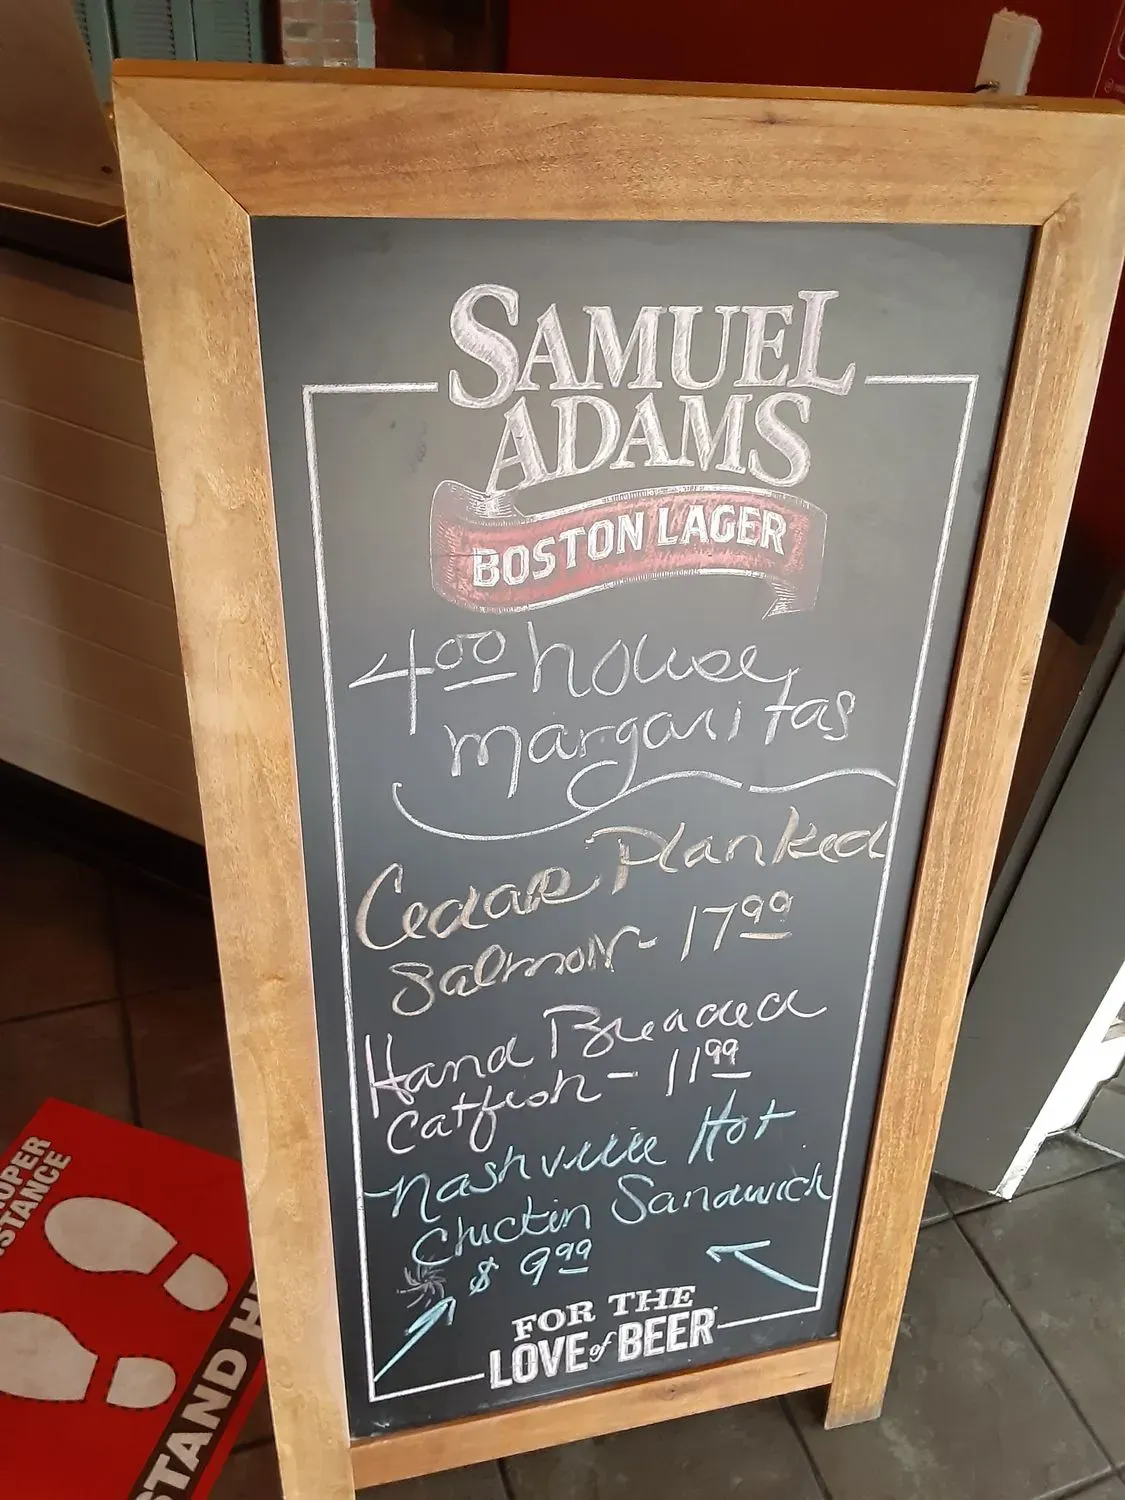 SAMUEL
ADAMS
BOSTON LAGER
4.00 house
margaritas
Cedar Planked
Salmon - 17.99
Hand Breaded
Catfish - 11.99
Nashville Hot
Chicken Sandwich
$ 9.99
FOR THE
LOVE of BEER
STANCE
STAND H